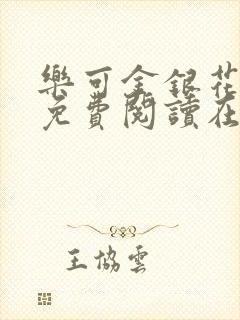 樂可金銀花
免費閱讀在
王協雲